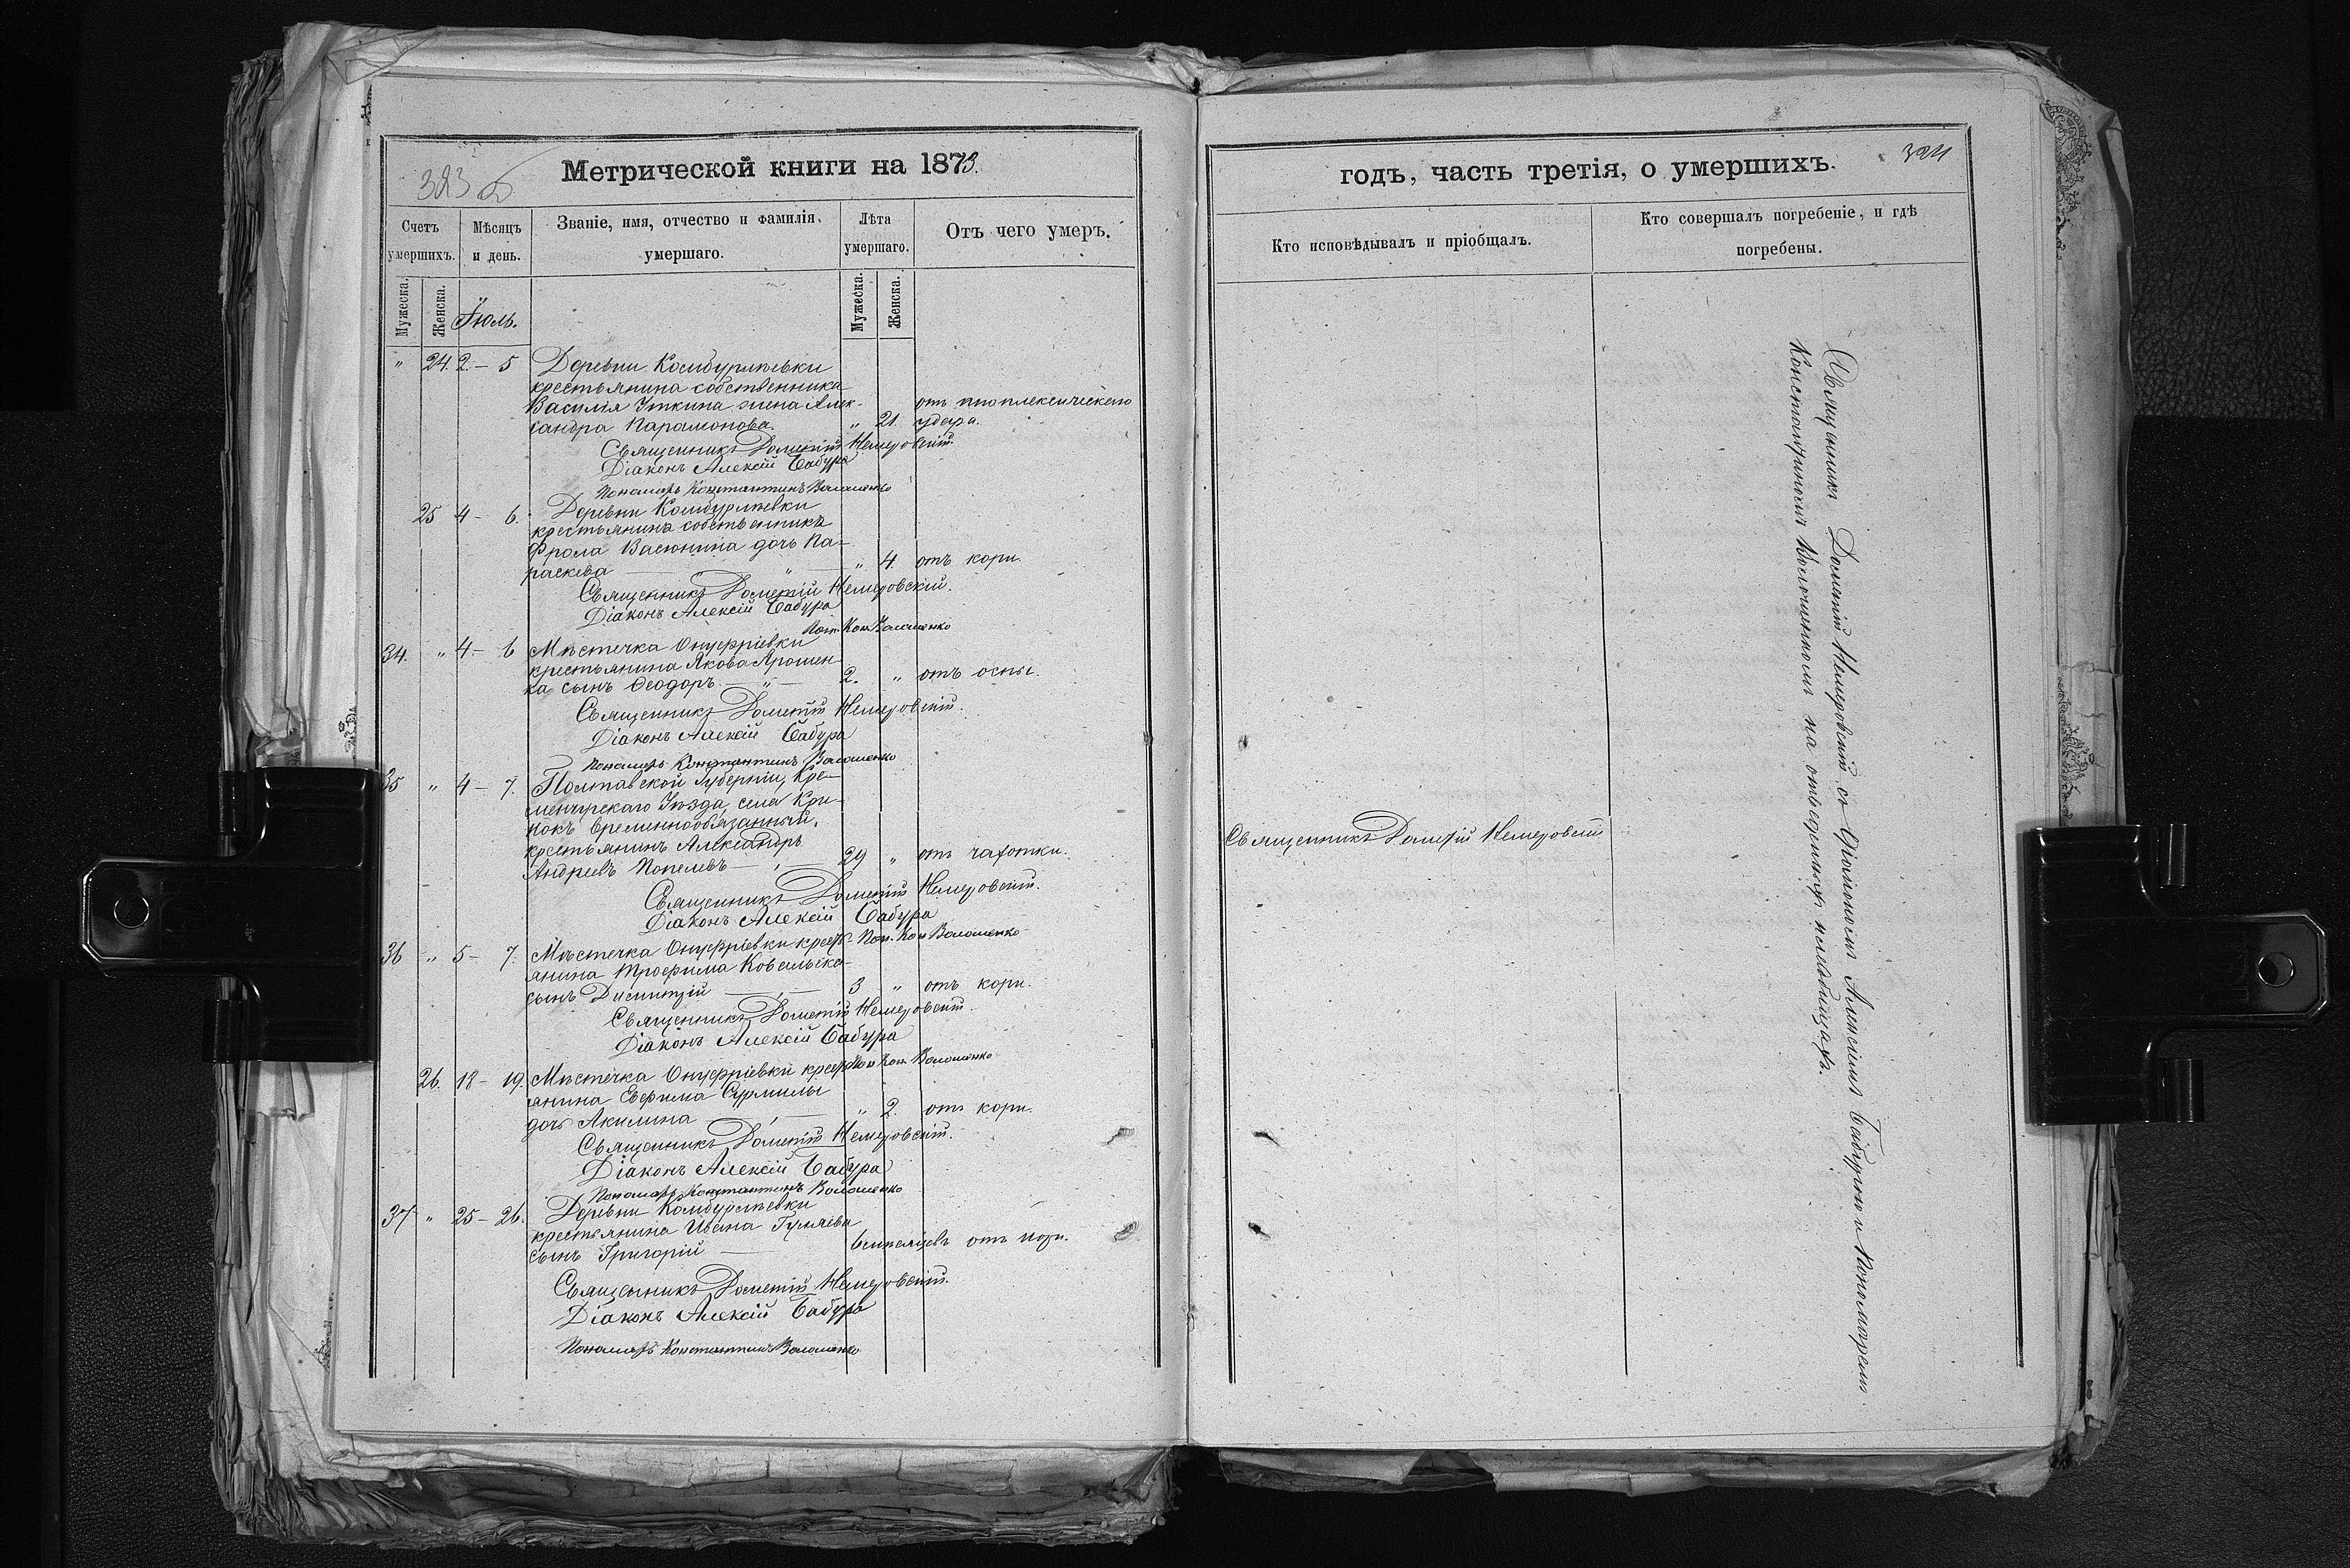 Метрической книги на 1873.
Счетъ умершихъ.
Мѣсяцъ и день.
Званіе, имя, отчество и фамилія умершаго.
Лѣта умершаго.
Отъ чего умеръ.
Мужеска.
Женска.
Іюль.
Мужеска.
Женска.
" 24. 2 – 5 Деревни Камбурлѣевки
крестьянина собственника
Василія Уткина жена Алек-
сандра Парамонова. " 21. отъ апоплексическаго
удара.
Священникъ Дометій Немеровскій.
Діаконъ Алексій Бабура
Пономарь Константинъ Волошенко
25 4 – 6. Деревни Камбурлѣевки
крестьянина собственника
Фрола Васюнина дочь Па-
раскева " " 4. отъ кори.
Священникъ Дометій Немеровскій.
Діаконъ Алексій Бабура
Пон. Кон. Волошенко
34. " 4 – 6 Мѣстечка Онуфріевки
крестьянина Якова Ярошен-
ка сынъ Ѳеодоръ " 2. " отъ оспы.
Священникъ Дометій Немеровскій.
Діаконъ Алексій Бабура
Пономарь Константинъ Волошенко
35 " 4 – 7. Полтавской Губерніи, Кре-
менчугскаго Уѣзда, села Кри-
нокъ временнообязанный
крестьянинъ Александръ
Андреевъ 29 " отъ чахотки.
Священникъ Дометій Немеровскій.
Діаконъ Алексій Бабура
Пон. Кон. Волошенко
36 " 5 – 7. Мѣстечка Онуфріевки крест-
янина Трофима Ковальска-
сынъ Димитрій 3 " отъ кори.
Священникъ Дометій Немеровскій.
Діаконъ Алексій Бабура
Пон. Кон. Волошенко
26. 18 – 19. Мѣстечка Онуфріевки крест-
янина Евфима Сурмилы
дочь Акилина " 2. отъ кори.
Священникъ Дометій Немеровскій.
Діаконъ Алексій Бабура
Пономарь Константинъ Волошенко
37 " 25 – 26. Деревни Камбурлѣевки
крестьянина Ивана
сынъ Григорій 6 отъ кори.
Священникъ Дометій Немеровскій.
Діаконъ Алексій Бабура
Пономарь Константинъ Волошенко
годъ, часть третія, о умершихъ. 324
Кто исповѣдывалъ и пріобщалъ.
Кто совершалъ погребеніе, и гдѣ погребены.
Священникъ Дометій Немеровскій
Священникъ Дометій Немеровскій съ Діакономъ Алексіемъ Бабурою и Пономаремъ
Константиномъ Волошенкомъ на отведенныхъ кладбищахъ.